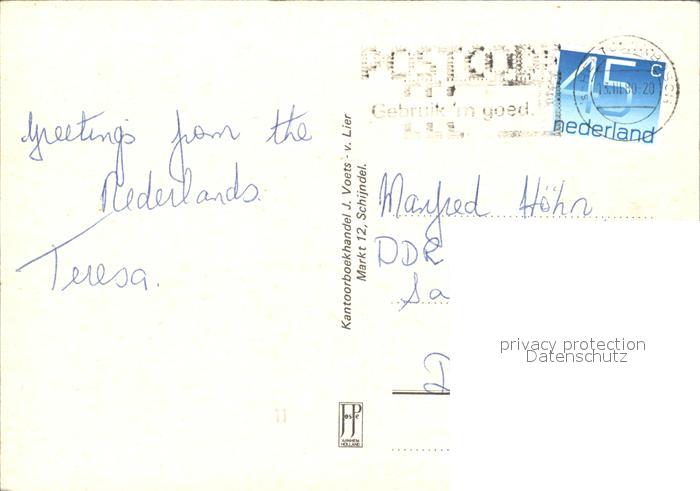 Greetings from the
Nederlands.
Teresa.
Kantoorboekhandel J. Voets - v. Lier
Markt 12, Schijndel.
POSTCODE
Gebruik 'm goed.
45 c
nederland
13.III.80-20
Manfred Höhn
DDR
Sa
D
JosPé
ARNHEM
HOLLAND
11
privacy protection
Datenschutz